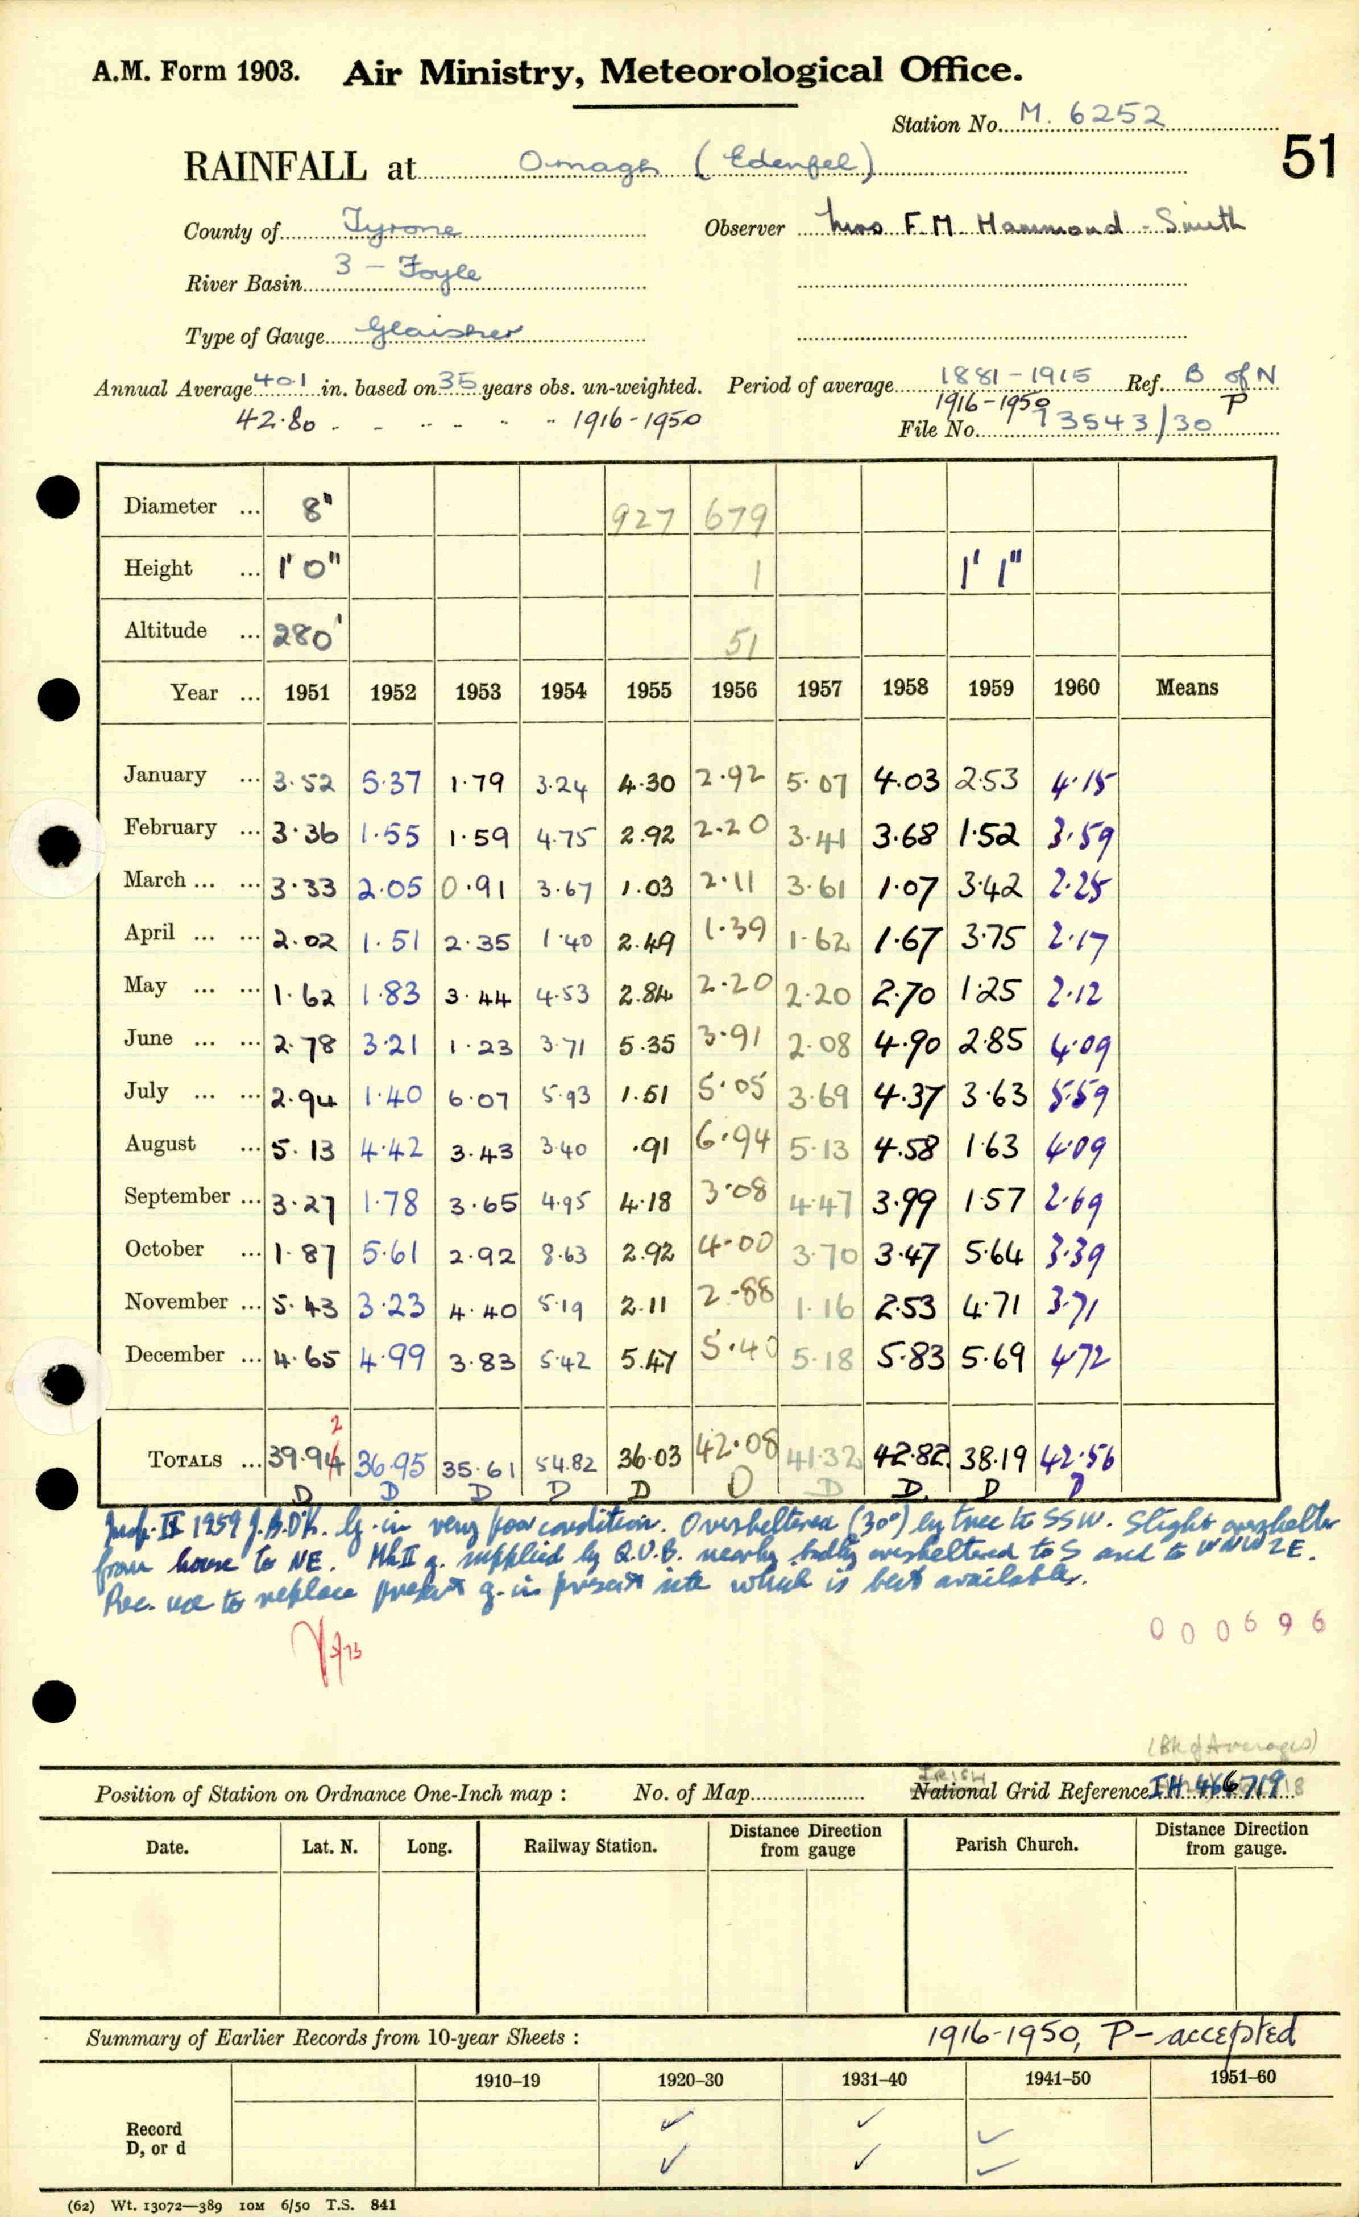 A.M. Form 1903. Air Ministry, Meteorological Office.
Station No. M. 6252
51
RAINFALL at Omagh (Edenfel)
County of Tyrone Observer Mrs F.M. Hammond-Smith
River Basin 3 - Foyle
Type of Gauge Glaisher
Annual Average 40.1 in. based on 35 years obs. un-weighted. Period of average 1881-1915 Ref. B of N
42.80 - - - - - - 1916-1950 1916-1950 P
File No. 93543/30
Diameter ... 8" 927 679
Height ... 1' 0" 1 1' 1"
Altitude ... 280' 51
Year ... 1951 1952 1953 1954 1955 1956 1957 1958 1959 1960 Means
January ... 3.52 5.37 1.79 3.24 4.30 2.92 5.07 4.03 2.53 4.15
February ... 3.36 1.55 1.59 4.75 2.92 2.20 3.41 3.68 1.52 3.59
March ... ... 3.33 2.05 0.91 3.67 1.03 2.11 3.61 1.07 3.42 2.25
April ... ... 2.02 1.51 2.35 1.40 2.49 1.39 1.62 1.67 3.75 2.17
May ... ... 1.62 1.83 3.44 4.53 2.84 2.20 2.20 2.70 1.25 2.12
June ... ... 2.78 3.21 1.23 3.71 5.35 3.91 2.08 4.90 2.85 4.09
July ... ... 2.94 1.40 6.07 5.93 1.51 5.05 3.69 4.37 3.63 5.59
August ... 5.13 4.42 3.43 3.40 .91 6.94 5.13 4.58 1.63 4.09
September ... 3.27 1.78 3.65 4.95 4.18 3.08 4.47 3.99 1.57 2.69
October ... 1.87 5.61 2.92 8.63 2.92 4.00 3.70 3.47 5.64 3.39
November ... 5.43 3.23 4.40 5.19 2.11 2.88 1.16 2.53 4.71 3.71
December ... 4.65 4.99 3.83 5.42 5.47 5.40 5.18 5.83 5.69 4.72
2
TOTALS ... 39.94 36.95 35.61 54.82 36.03 42.08 41.32 42.82 38.19 42.56
D D D D D D D D D D
Insp. II 1959 J.B.D'K. G. in very poor condition. Oversheltered (30°) by tree to SSW. Slight overshelter
from house to NE. Mk II g. supplied by Q.U.B. nearby badly oversheltered to S and to WNW & E.
Rec. use to replace present g. in present site which is best available.
000696
(Bk of Averages)
IRISH
Position of Station on Ordnance One-Inch map : No. of Map National Grid Reference IH 466719
Date. Lat. N. Long. Railway Station. Distance Direction from gauge Parish Church. Distance Direction from gauge.
Summary of Earlier Records from 10-year Sheets : 1916-1950, P-accepted
1910–19 1920–30 1931–40 1941–50 1951–60
Record ✓ ✓ ✓
D, or d ✓ ✓ ✓
(62) Wt. 13072—389 10M 6/50 T.S. 841